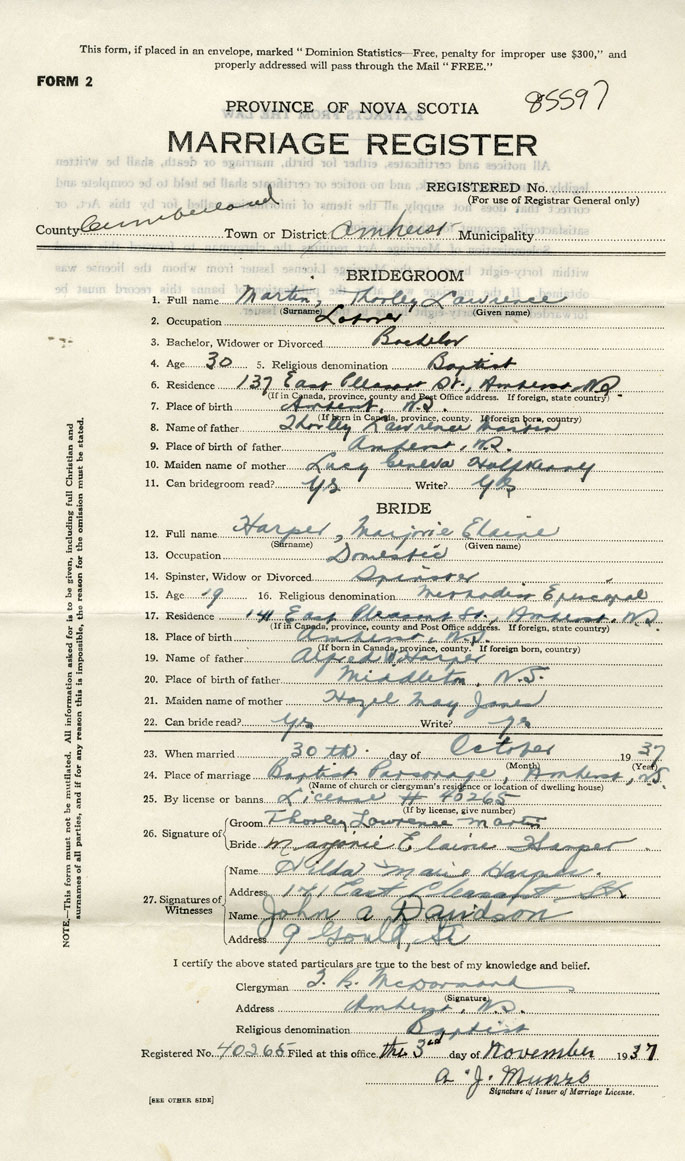 This form, if placed in an envelope, marked "Dominion Statistics—Free, penalty for improper use $300," and
properly addressed will pass through the Mail "FREE."
FORM 2
85597
PROVINCE OF NOVA SCOTIA
MARRIAGE REGISTER
REGISTERED No.
(For use of Registrar General only)
County Cumberland Town or District Amherst Municipality
BRIDEGROOM
1. Full name Martin, Thorley Lawrence
(Surname) (Given name)
2. Occupation Laborer
3. Bachelor, Widower or Divorced Bachelor
4. Age 30 5. Religious denomination Baptist
6. Residence 137 East Pleasant St., Amherst, N.S.
(If in Canada, province, county and Post Office address. If foreign, state country)
7. Place of birth Amherst, N.S.
(If born in Canada, province, county. If foreign born, country)
8. Name of father Thorley Lawrence Martin
9. Place of birth of father Amherst, N.S.
10. Maiden name of mother Lucy Geneva Halfkenny
11. Can bridegroom read? Yes Write? Yes
BRIDE
12. Full name Harper, Marjorie Elaine
(Surname) (Given name)
13. Occupation Domestic
14. Spinster, Widow or Divorced Spinster
15. Age 19 16. Religious denomination Methodist Episcopal
17. Residence 141 East Pleasant St., Amherst, N.S.
(If in Canada, province, county and Post Office address. If foreign, state country)
18. Place of birth Amherst, N.S.
(If born in Canada, province, county. If foreign born, country)
19. Name of father Alfred Harper
20. Place of birth of father Middleton, N.S.
21. Maiden name of mother Hazel May Jones
22. Can bride read? Yes Write? Yes
23. When married 30th day of October 1937
(Month) (Year)
24. Place of marriage Baptist Parsonage, Amherst, N.S.
(Name of church or clergyman's residence or location of dwelling house)
25. By license or banns License # 40265
(If by license, give number)
26. Signature of
Groom Thorley Lawrence Martin
Bride Marjorie Elaine Harper
27. Signatures of Witnesses
Name Hilda Marie Harper
Address 141 East Pleasant St.
Name John A Davidson
Address 9 Gould, St
I certify the above stated particulars are true to the best of my knowledge and belief.
Clergyman T. B. McDormand
(Signature)
Address Amherst, N.S.
Religious denomination Baptist
Registered No. 40265 Filed at this office the 3rd day of November 1937
A. J. Munro
Signature of Issuer of Marriage License.
[SEE OTHER SIDE]
NOTE.—This form must not be mutilated. All information asked for is to be given, including full Christian and
surnames of all parties, and if for any reason this is impossible, the reason for the omission must be stated.